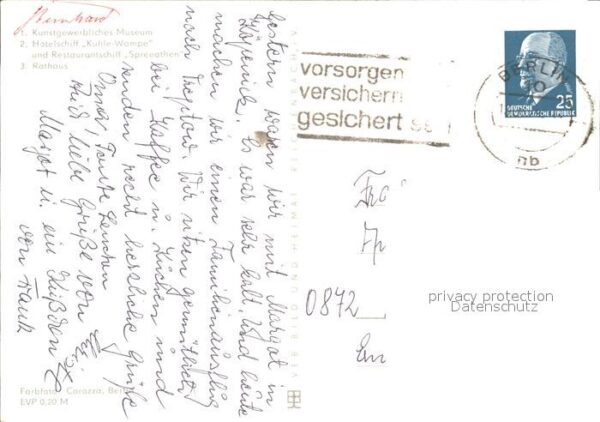 Bernhard
1. Kunstgewerbliches Museum
2. Hotelschiff „Kuhle-Wampe"
und Restaurantschiff „Spreeathen"
3. Rathaus
Gestern waren wir mit Margot in
Köpenick. Es war sehr kalt. Und heute
machen wir einen Familienausflug
nach Treptow. Wir sitzen gemütlich
bei Kaffee u. Kuchen und
senden recht herzliche Grüße
Oma, Tante Lenchen
Viele liebe Grüße von
Margot u. ein Küßchen
von Frank
Farbfoto: Carozza, Berlin
EVP 0,20 M
VEB BILD UND HEIMAT
vorsorgen
versichern
gesichert sein
BERLIN
10
nb
25
DEUTSCHE
DEMOKRATISCHE REPUBLIK
Fra
0872
privacy protection
Datenschutz